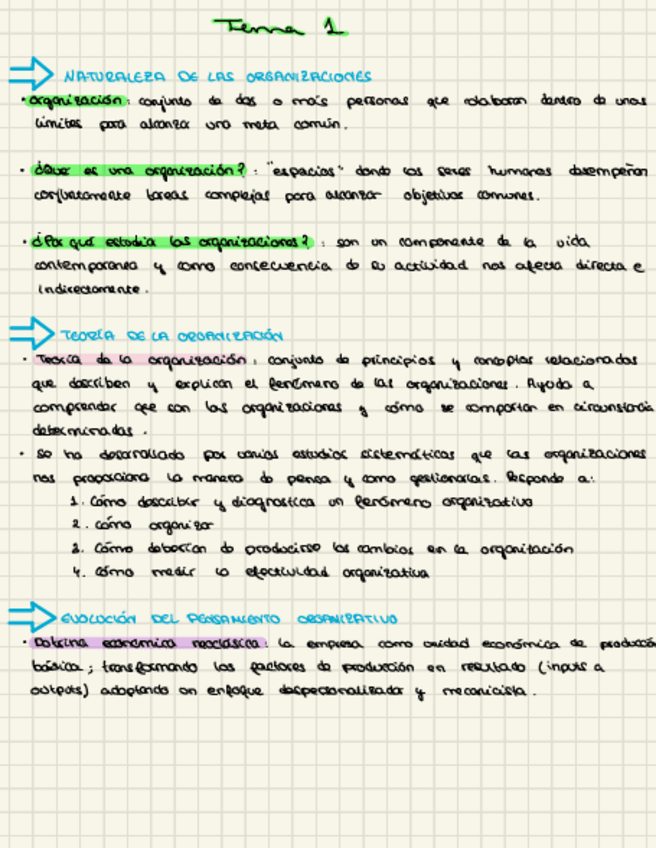 Tema 1
NATURALEZA DE LAS ORGANIZACIONES
· organización: conjunto de dos o más personas que colaboran dentro de unos
límites para alcanzar una meta común.
· ¿Que es una organización?: "espacios" donde los seres humanos desempeñan
conjuntamente tareas complejas para alcanzar objetivos comunes.
· ¿Por qué estudia las organizaciones?: son un componente de la vida
contemporanea y como consecuencia de su actividad nos afecta directa e
indirectamente.
TEORÍA DE LA ORGANIZACIÓN
· Teoría de la organización: conjunto de principios y conceptos relacionados
que describen y explican el fenómeno de las organizaciones. Ayuda a
comprender que son las organizaciones y cómo se comportan en circunstancia
determinadas.
· Se ha desarrollado por varios estudios sistemáticos que las organizaciones
nos proporciona la manera de pensa y como gestionarlas. Responde a:
1. Cómo describir y diagnostica un fenómeno organizativo
2. Cómo organizar
3. Cómo deberían de producirse los cambios en la organización
4. Cómo medir la efectividad organizativa
EVOLUCIÓN DEL PENSAMIENTO ORGANIZATIVO
· Doctrina económica neoclásica: la empresa como unidad económica de producción
básica; transformando los factores de producción en resultado (inputs a
outputs) adoptando un enfoque despersonalizado y mecanicista.